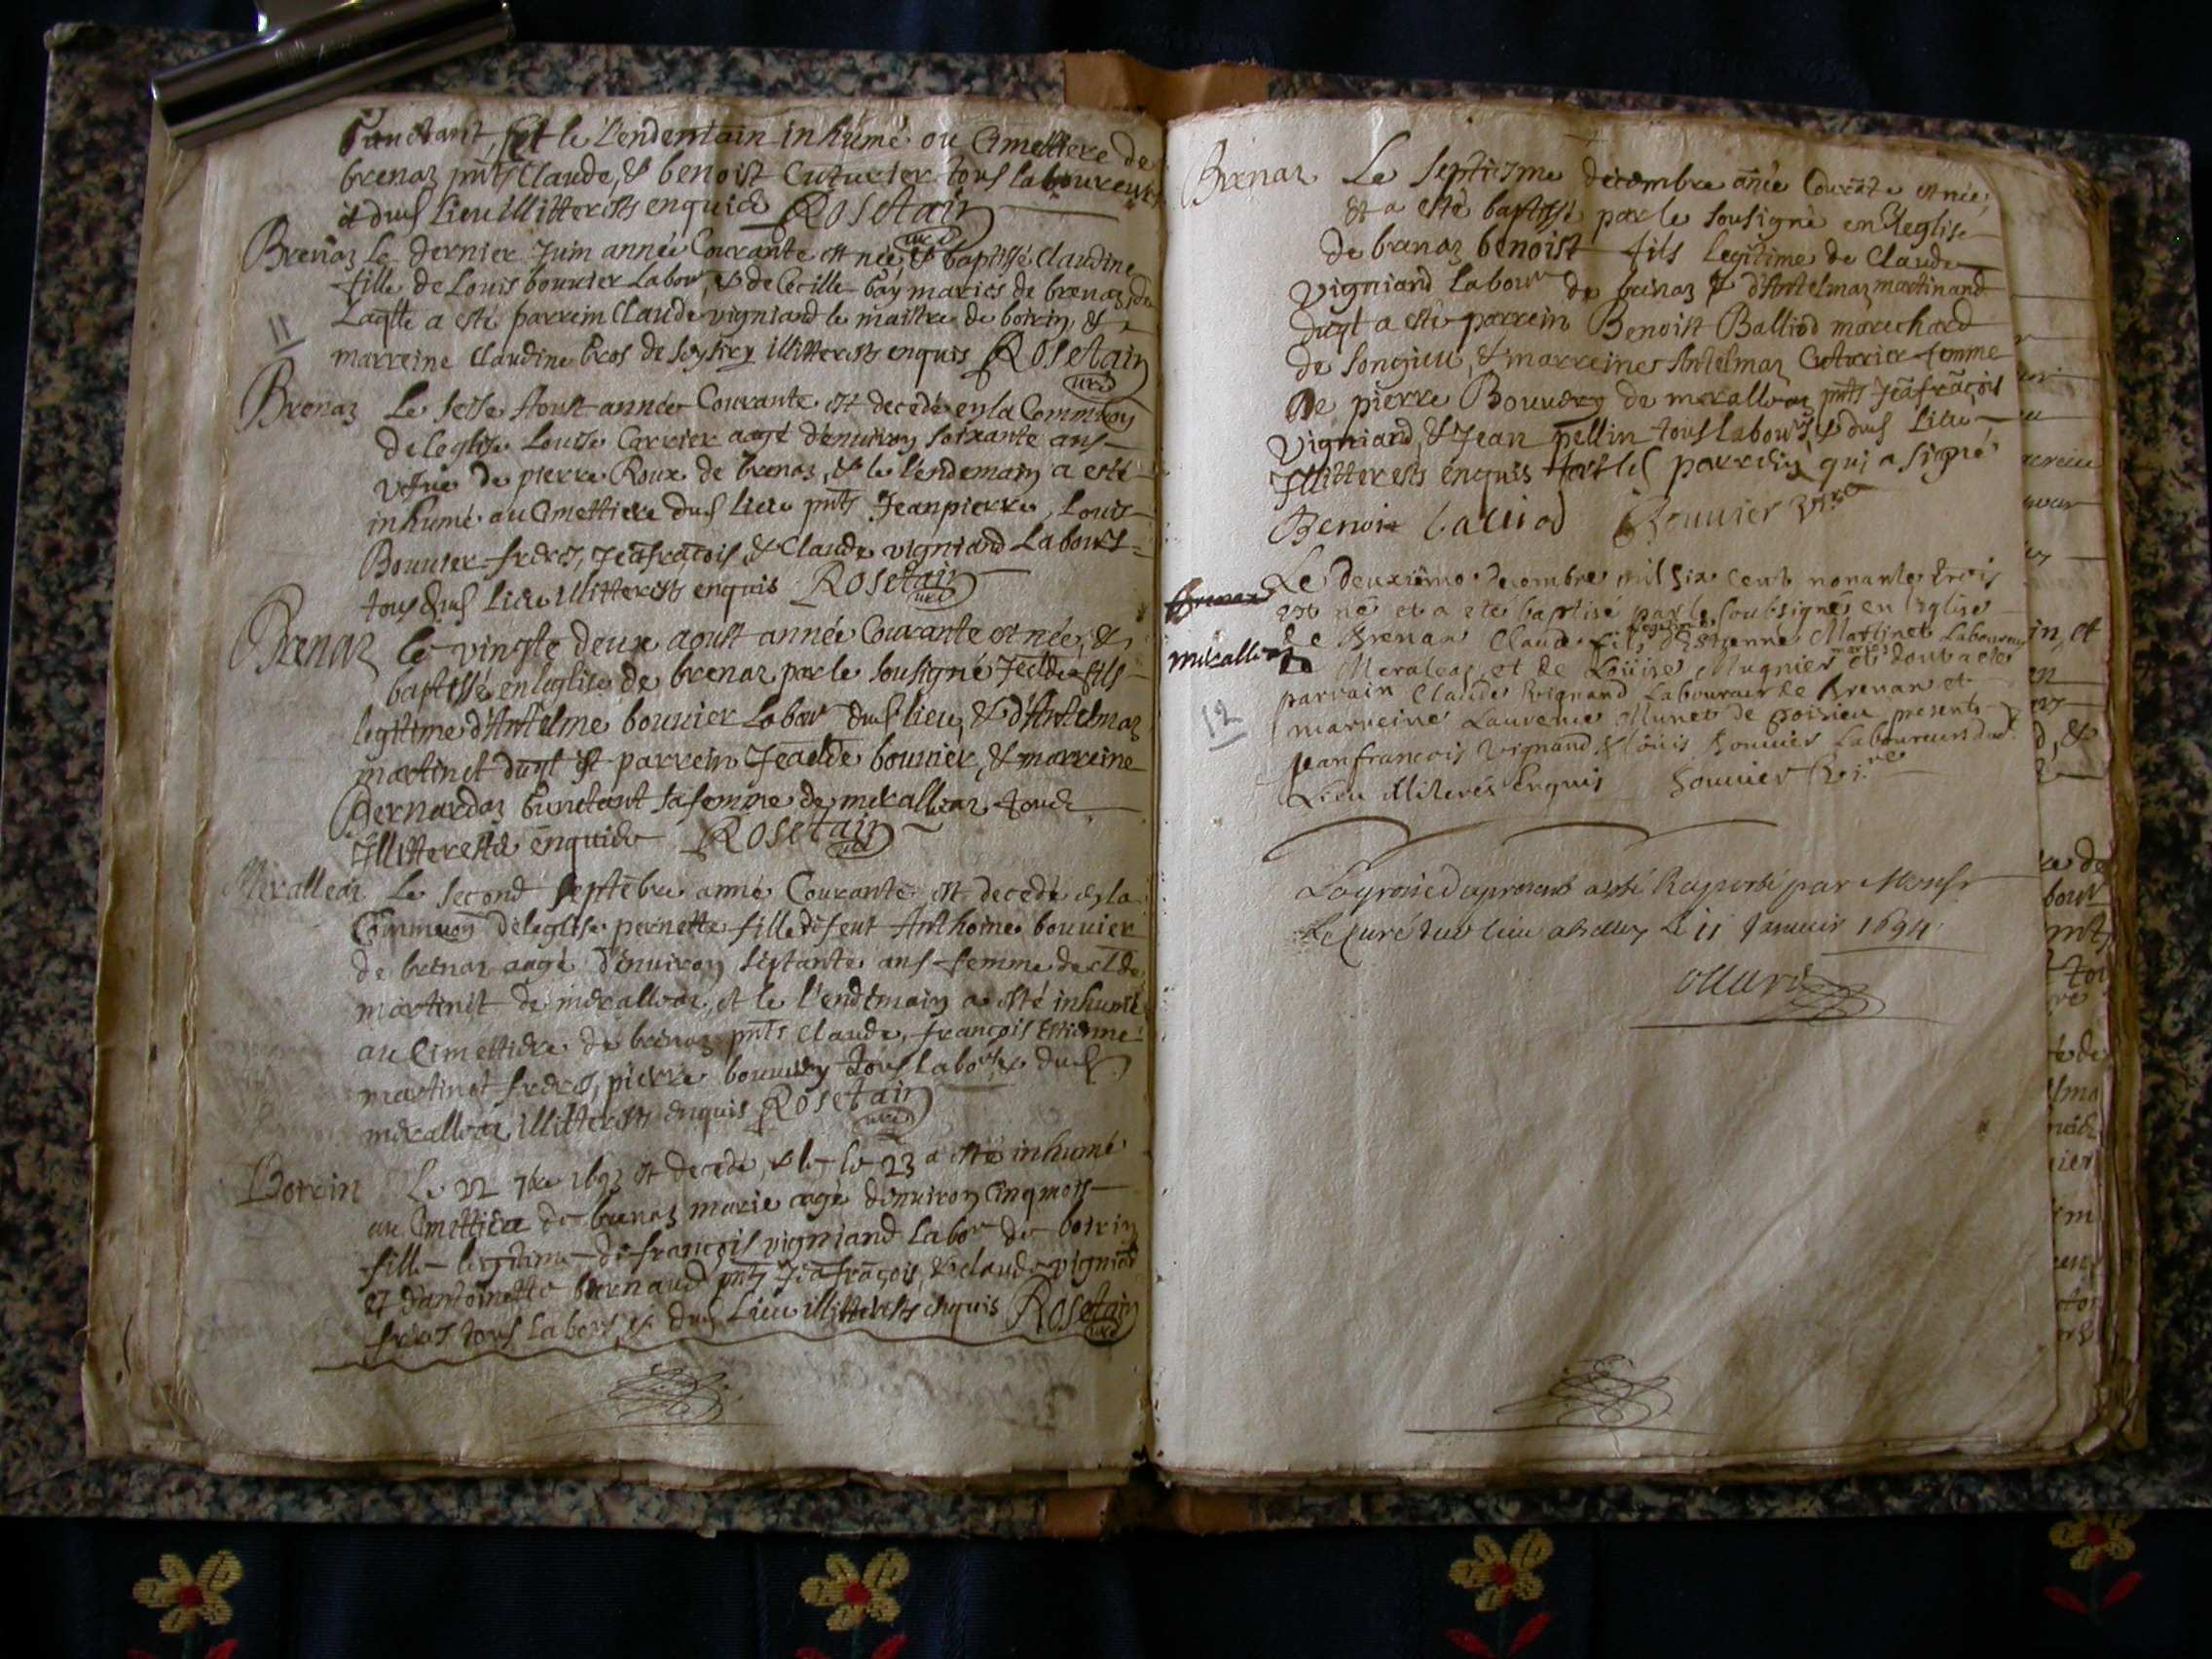 Bunctant, Et le L'endemain inhumé ou Cimettiere de
brenaz pnts Claude, & benoist Cuturier tous laboureurs
& dud lieu illitterests enquis Rosetain
curé
Brenaz Le dernier Juin année Courante est née & baptissé Claudine
fille de Louis bouvier Labor, & de Cecille bay mariés de brenaz, de
Laqlle a esté parrein Claude vigniand le maistre de boirin, &
11
marreine Claudine bros de illitterests enquis Rosetain
curé
Brenaz Le seise Aoust année Courante est decedé en la Commion
de leglise Louise Carrier aagé denuiron soixante ans
vefue de pierre Roux de brenaz, & le l'endemain a esté
inhumé au Cimettiere dud lieu pnts Jeanpierre, Louis
Bouvier freres, Jeafracois & Claude vigniand Labours
tous dud Lieu illitterests enquis Rosetain
curé
Brenaz le vingte deux aoust année Courante est née, &
baptissé en leglise de brenaz par le sousigné Jeclde fils
legitime d'Antelme bouvier Labor dud lieu, & d'Antelmaz
martinet duql est parrein Jeaclde bouvier, & marreine
Bernardaz bunctant sa femme de meralleaz tous
Illitterests enquis Rosetain
curé
Meralleaz Le second septebre anné Courante est decedé en la
Commuon de leglise pernette fille de feut Anthoine bouvier
de brenaz aagé d'enuiron septante ans femme de Clde
martinet de meralleaz, et le l'endemain a esté inhumé
au Cimettiere de brenaz pnts Claude, françois Estienne
martinet freres, pierre bouvery tous labors, & dud
meralleaz illitterests enquis Rosetain
curé
Boirin Le 22 7bre 1693 est decedé, & le 23 a esté inhumé
au Cimettiere de brenaz marie aagé denuiron Cinq mois
fille legitime de françois vigniand labor de boirin
et d'antoinette bernaud pnts Jeafraçois, & claude vigniad
freres tous labors, & dud Lieu illitterests enquis Rosetain
curé
Brenaz Le septiesme décembre anée Courate est née,
& a esté baptissé par le sousigné en l'eglise
de brenaz benoist fils legitime de Claude
vigniand labour de brenaz & d'Antelmaz martinand
duql a esté parrein Benoist Balliod marechard
de songieu, & marreine Antelmaz Cuturier femme
de pierre Bouvery de meralleaz pnts Jeafraçois
vigniand, & Jean pellin tous labours, & dud Lieu
Illitterests enquis horsle parrein qui a signé
Benoit balliod Bouvier Vire
Brenaz Le deuxiemo decembre mil six cent nonante trois
est né et a eté baptisé par le soubsigné en l'eglise
meralleaz de Brenaz Claude legitime fils d'Estienne Martinet Laboureur
de Meraleaz et de Loüise Mugnier mariés et dont a eté
parrain Claude Vignand Laboureur de Brenaz et
12
marreine Laurence Munet de poisieu presents
jeanfrancois Vignand & loüis bouvier Laboureurs dud
Lieu illiterés Enquis Bouvier Vire
a esté Raporté par Monsr
Le Curé dud lieu Le 11 Janvier 1694